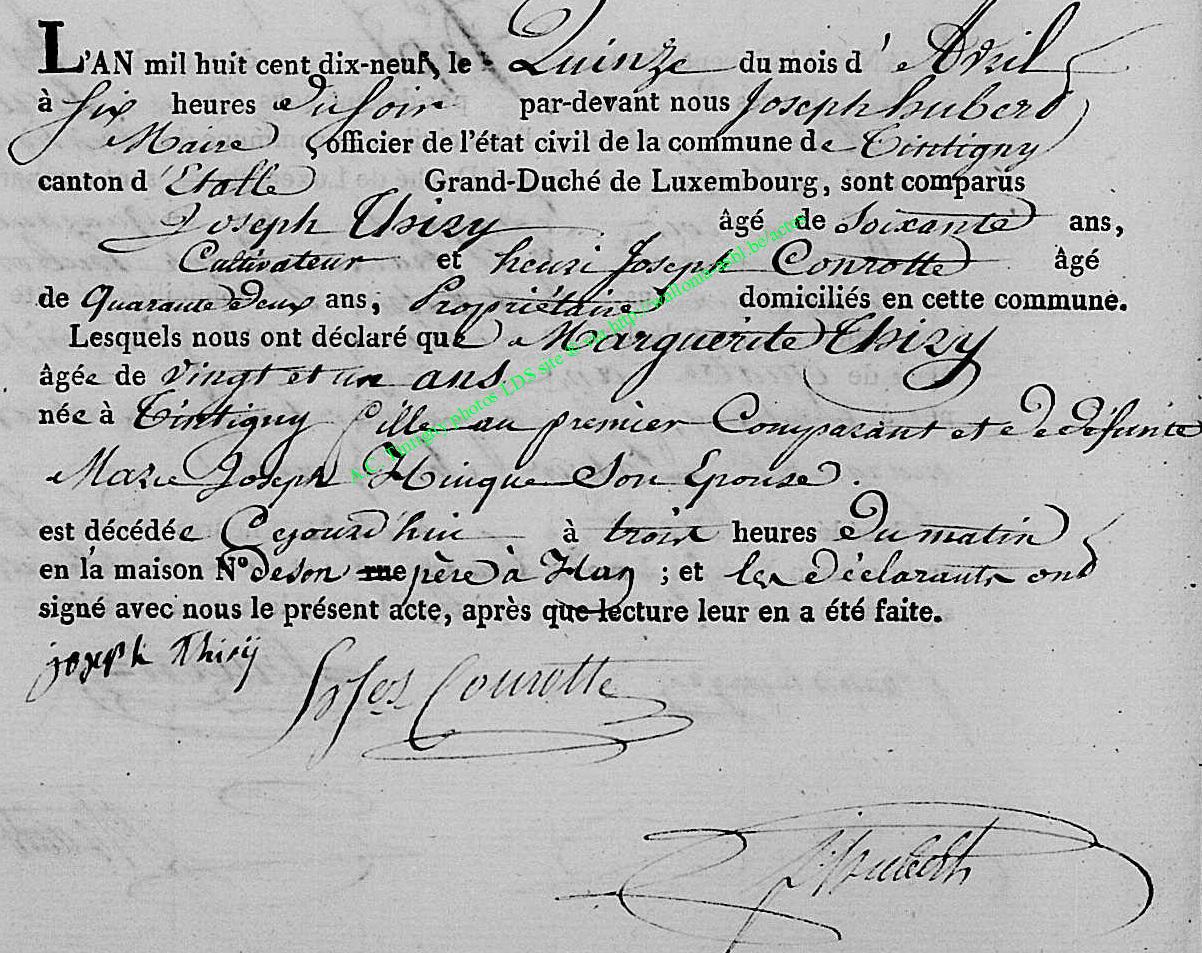 L'AN mil huit cent dix-neuf, le Quinze du mois d' Avril
à Six heures du soir par-devant nous Joseph hubert
Maire officier de l'état civil de la commune de Tintigny
canton d'Etalle Grand-Duché de Luxembourg, sont comparus
Joseph Thiry âgé de Soixante ans,
Cultivateur et henri Joseph Conrotte âgé
de Quarante deux ans, Propriétaire domiciliés en cette commune.
Lesquels nous ont déclaré que Marguerite Thiry
âgée de vingt et un ans.
née à Tintigny fille au premier Comparant et de défunte
Marie Joseph Hinque Son Epouse.
est décédée Cejourd'hui à trois heures du matin
en la maison N° de son rue père à Han ; et les déclarants ont
signé avec nous le présent acte, après que lecture leur en a été faite.
joseph Thirÿ
Conrotte
A.C. Tintigny photos LDS site & sur http://wallonia-asbl.be/actes